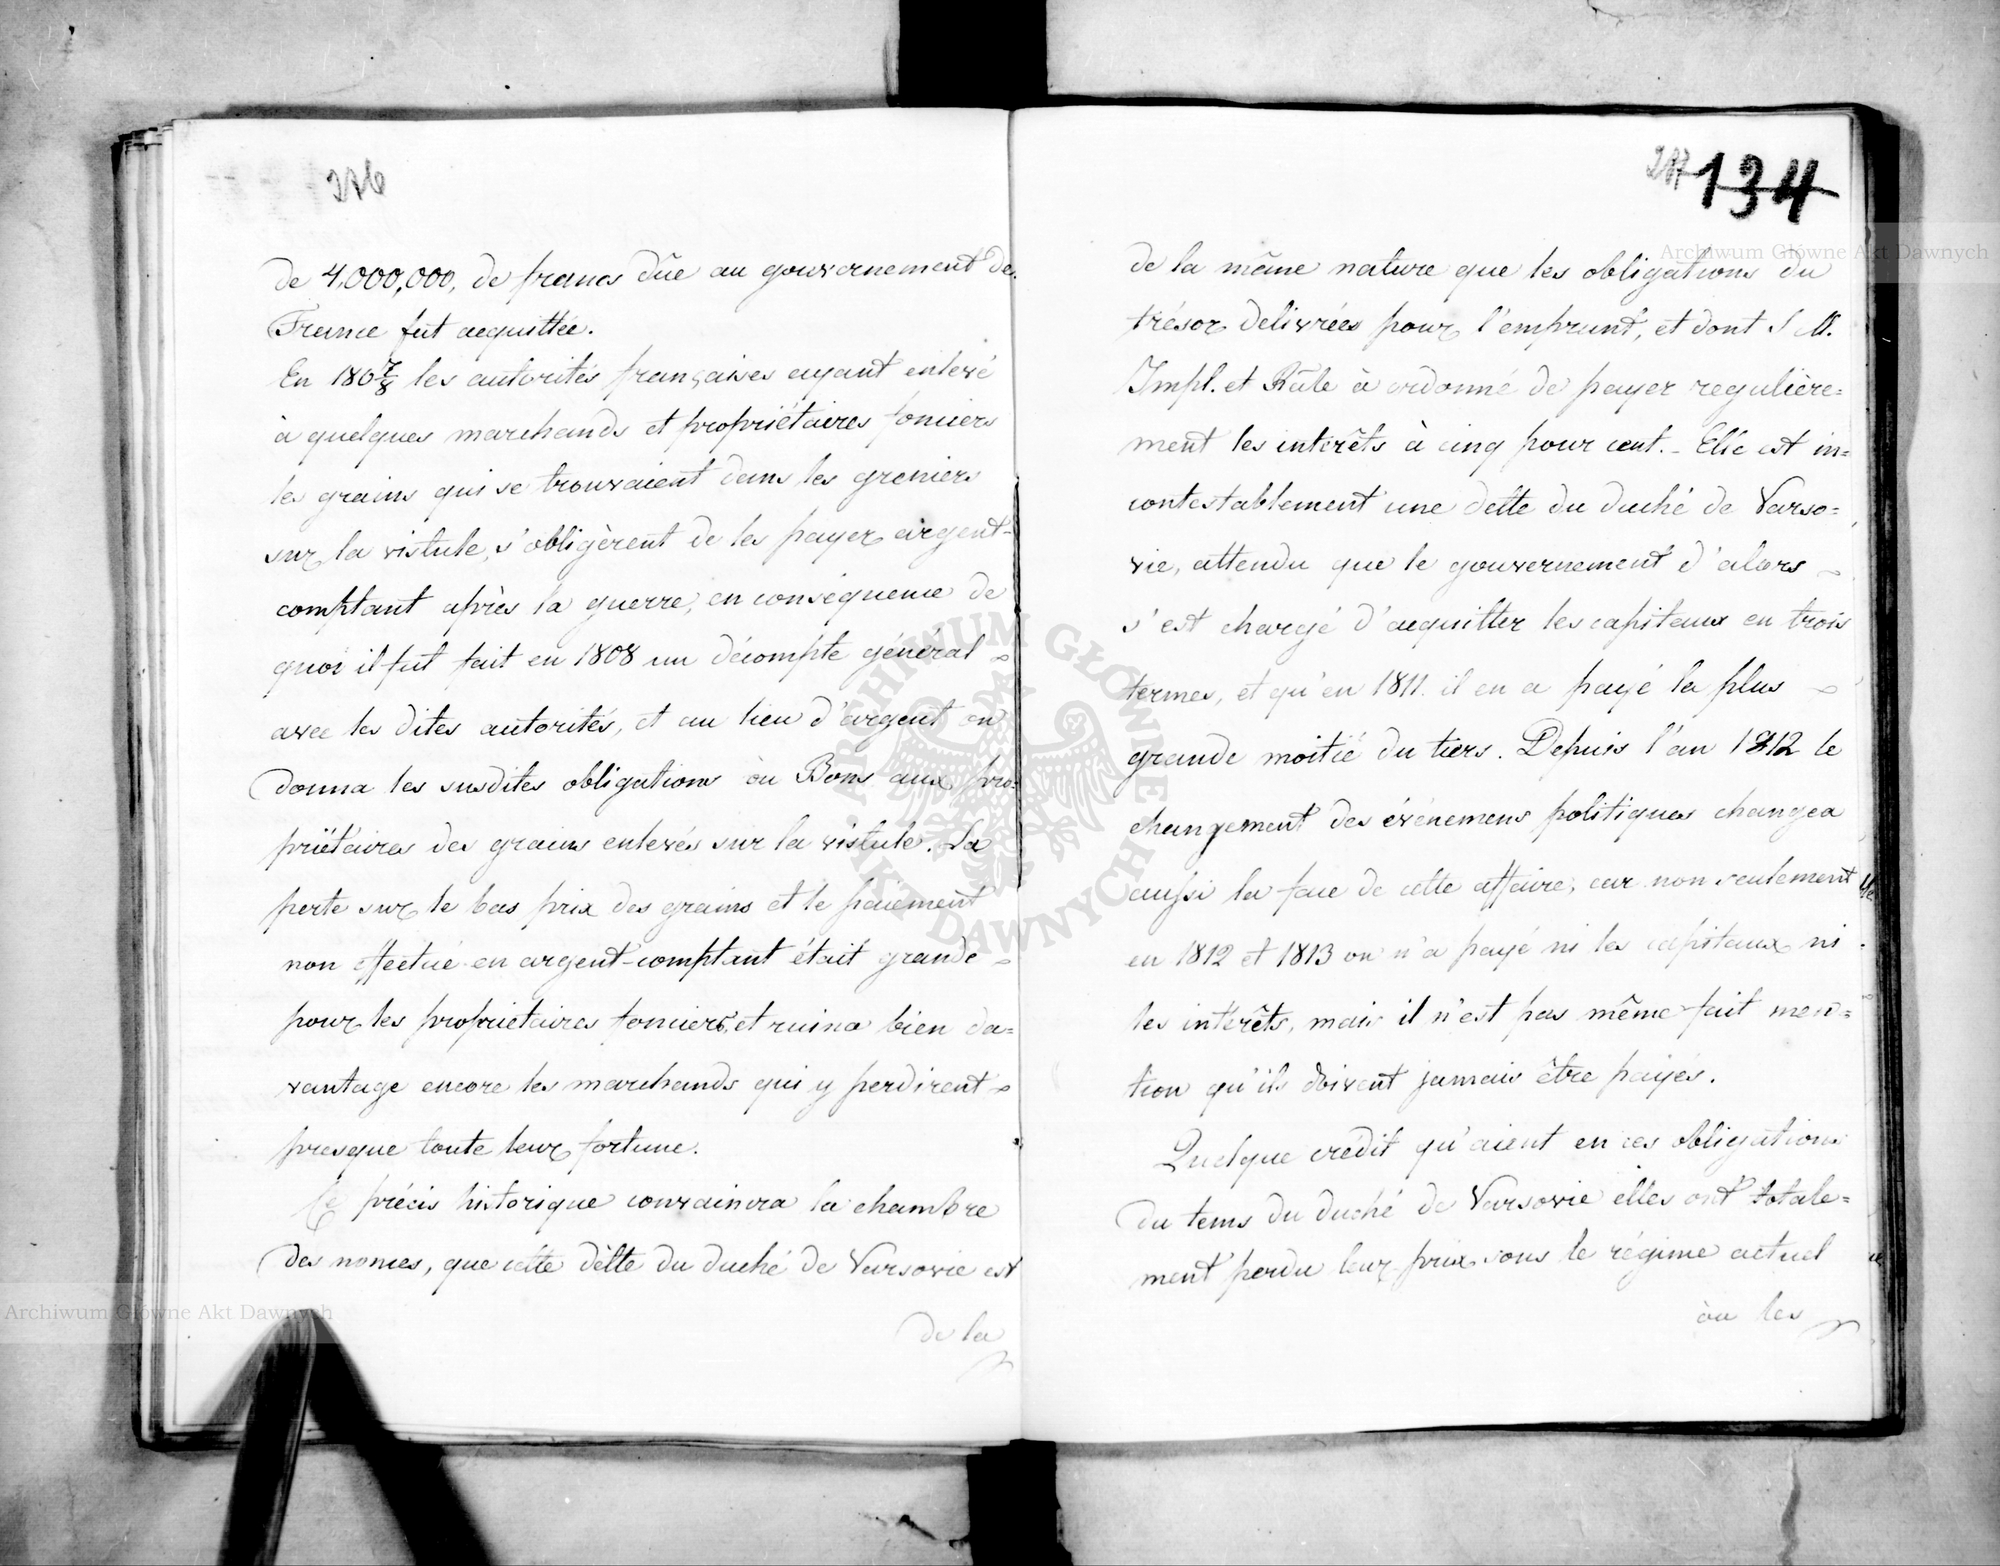 276
de 4,000,000, de francs dûe au gouvernement de
France fut acquittée.
En 180 7/8 les autorités françaises ayant enlevé
à quelques marchands et propriétaires fonciers
les grains qui se trouvaient dans les greniers
sur la vistule, s'obligèrent de les payer argent-
comptant après la guerre, en conséquence de
quoi il fut fait en 1808 un décompte général
avec les dites autorités, et au lieu d'argent on
donna les susdites obligations ou Bons aux pro-
priétaires des grains enlevés sur la vistule. La
perte sur le bas prix des grains et le paiement
non effectué en argent-comptant était grande
pour les propriétaires fonciers, et ruina bien da=
vantage encore les marchands qui y perdirent
presque toute leur fortune.
Ce précis historique convaincra la chambre
des nonces, que cette dètte du duché de Varsovie est
de la
217 134
de la même nature que les obligations du
trésor delivrées pour l'emprunt, et dont S M.
Impl. et Rȃle à ordonné de payer regulière=
ment les intérêts à cinq pour cent. - Elle est in=
contestablement une dette du duché de Varso=
vie, attendu que le gouvernement d'alors
s'est chargé d'acquitter les capitaux en trois
termes, et qu'en 1811. il en a payé la plus
grande moitié du tiers. Depuis l'an 1812 le
changement des événemens politiques changea
aussi la face de cette affaire, car non seulement
en 1812 et 1813 on n'a payé ni les capitaux ni
les intérêts, mais il n'est pas même fait men=
tion qu'ils doivent jamais être payés.
Quelque crédit qu'aient eu ces obligations
du tems du duché de Varsovie elles ont totale=
ment perdu leur prix sous le régime actuel
ou les
Archiwum Główne Akt Dawnych
Archiwum Główne Akt Dawnych
ARCHIWUM GŁÓWNE AKT DAWNYCH